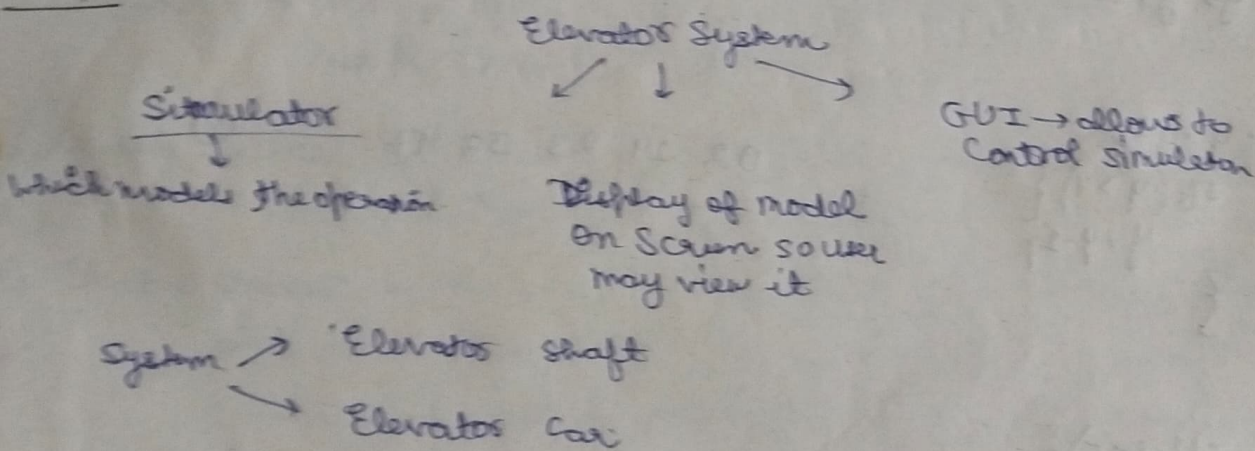 Elevator System
Simulator
which models the operation
Display of model
on Screen so user
may view it
GUI → allows to
Control simulator
System → Elevator shaft
→ Elevator Car